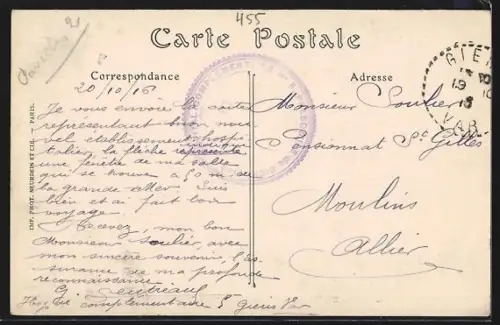 455
Carte Postale
Correspondance
Adresse
20/10/16
Je vous envoie la carte
représentant mon nou
vel établissement hospi
talier, la flèche indique
une fenêtre de ma salle
qui se trouve à 50 m de
la grande Mer. Suis
bien et ai fait bon
voyage.
Recevez, mon bon
Monsieur Soulier, avec
mon sincère souvenir, l'as
surance de ma profonde
reconnaissance.
G.
complémentaire 5 Giens Var
Monsieur Soulier
Pensionnat St Gilles
Moulins
Allier
GIENS
VAR
IMP. PHOT. NEURDEIN ET CIE. - PARIS.